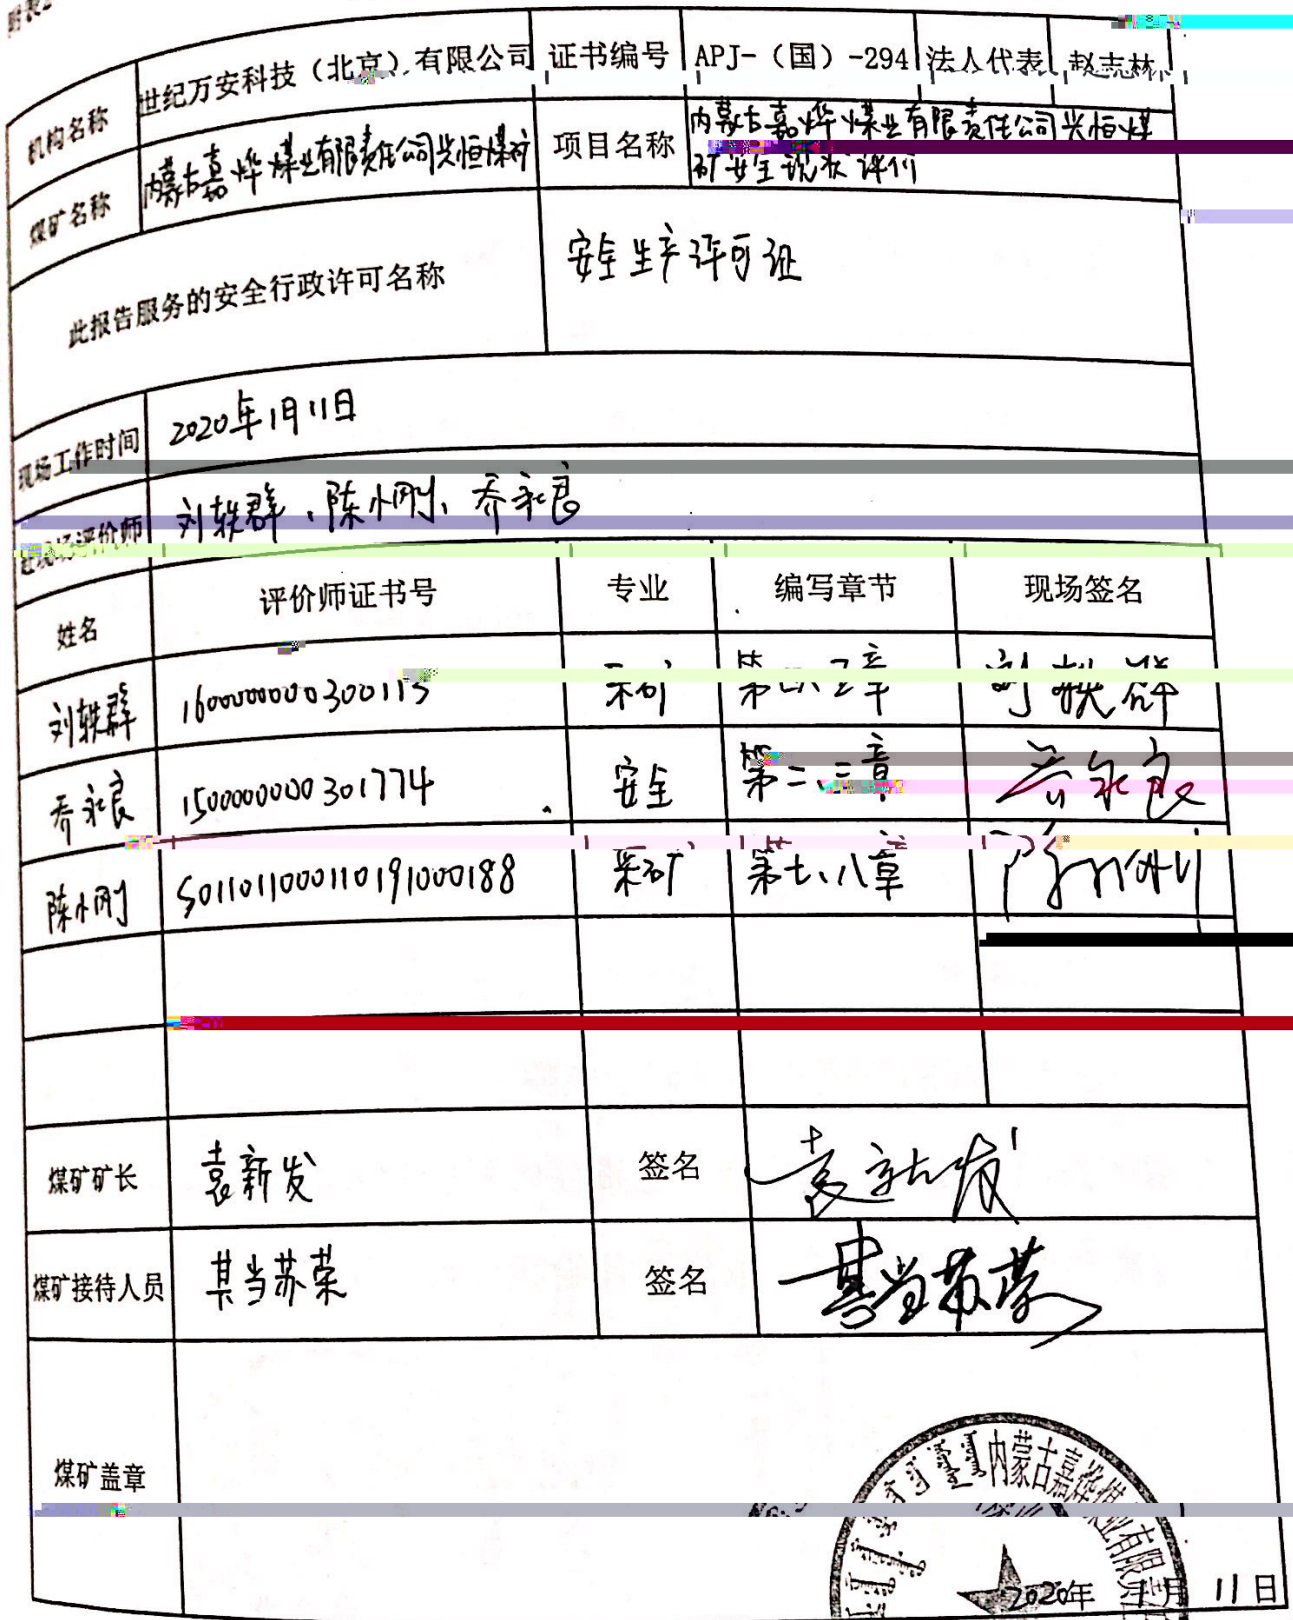 附表2
机构名称 世纪万安科技（北京）有限公司 证书编号 APJ-（国）-294 法人代表 赵志林
煤矿名称 内蒙古嘉烨煤业有限责任公司兴恒煤矿 项目名称 内蒙古嘉烨煤业有限责任公司兴恒煤
矿安全现状评价
此报告服务的安全行政许可名称 安全生产许可证
现场工作时间 2020年1月11日
赴现场评价师 刘轶群、陈小刚、乔永良
姓名 评价师证书号 专业 编写章节 现场签名
刘轶群 采矿 刘轶群
乔永良 1500000000301774 安全 乔永良
陈小刚 S011011000110191000188 采矿 第七、八章 陈小刚
煤矿矿长 袁新发 签名 袁新发
煤矿接待人员 其当苏荣 签名 其当苏荣
煤矿盖章
内蒙古嘉烨煤业有限责
2020年 1月 11日